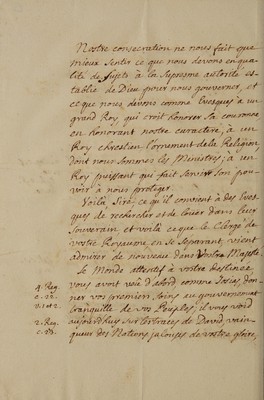 Nostre consecration ne nous fait que
mieux sentir ce que nous devons en qua-
lité de sujets à la supreme autorité es-
tablie de Dieu pour nous gouverner, et
ce que nous devons comme Evesques à un
grand Roy, qui croit honorer sa couronne
en honorant nostre caractere, à un
Roy chrestien l'ornement de la Religion
dont nous sommes les Ministres, à un
Roy puissant qui fait servir son pou-
voir à nous proteger.
Voilà, Sire, ce qu'il convient à des Eves-
ques de rechercher et de louer dans leur
souverain et voilà ce que le Clergé de
vostre Royaume, en se separant, vient
admirer de nouveau dans Vostre Majesté.
Le Monde attentif à vostre destinée,
4. Reg. vous avoit veu d'abord comme Josias don-
c. 22. ner vos premiers soins au gouvernement
v. 1 et 2. tranquille de vos Peuples, il vous void
2. Reg. aujourdhuy sur les traces de David, vain-
c. 23. queur des Nations jalouses de vostre gloire,